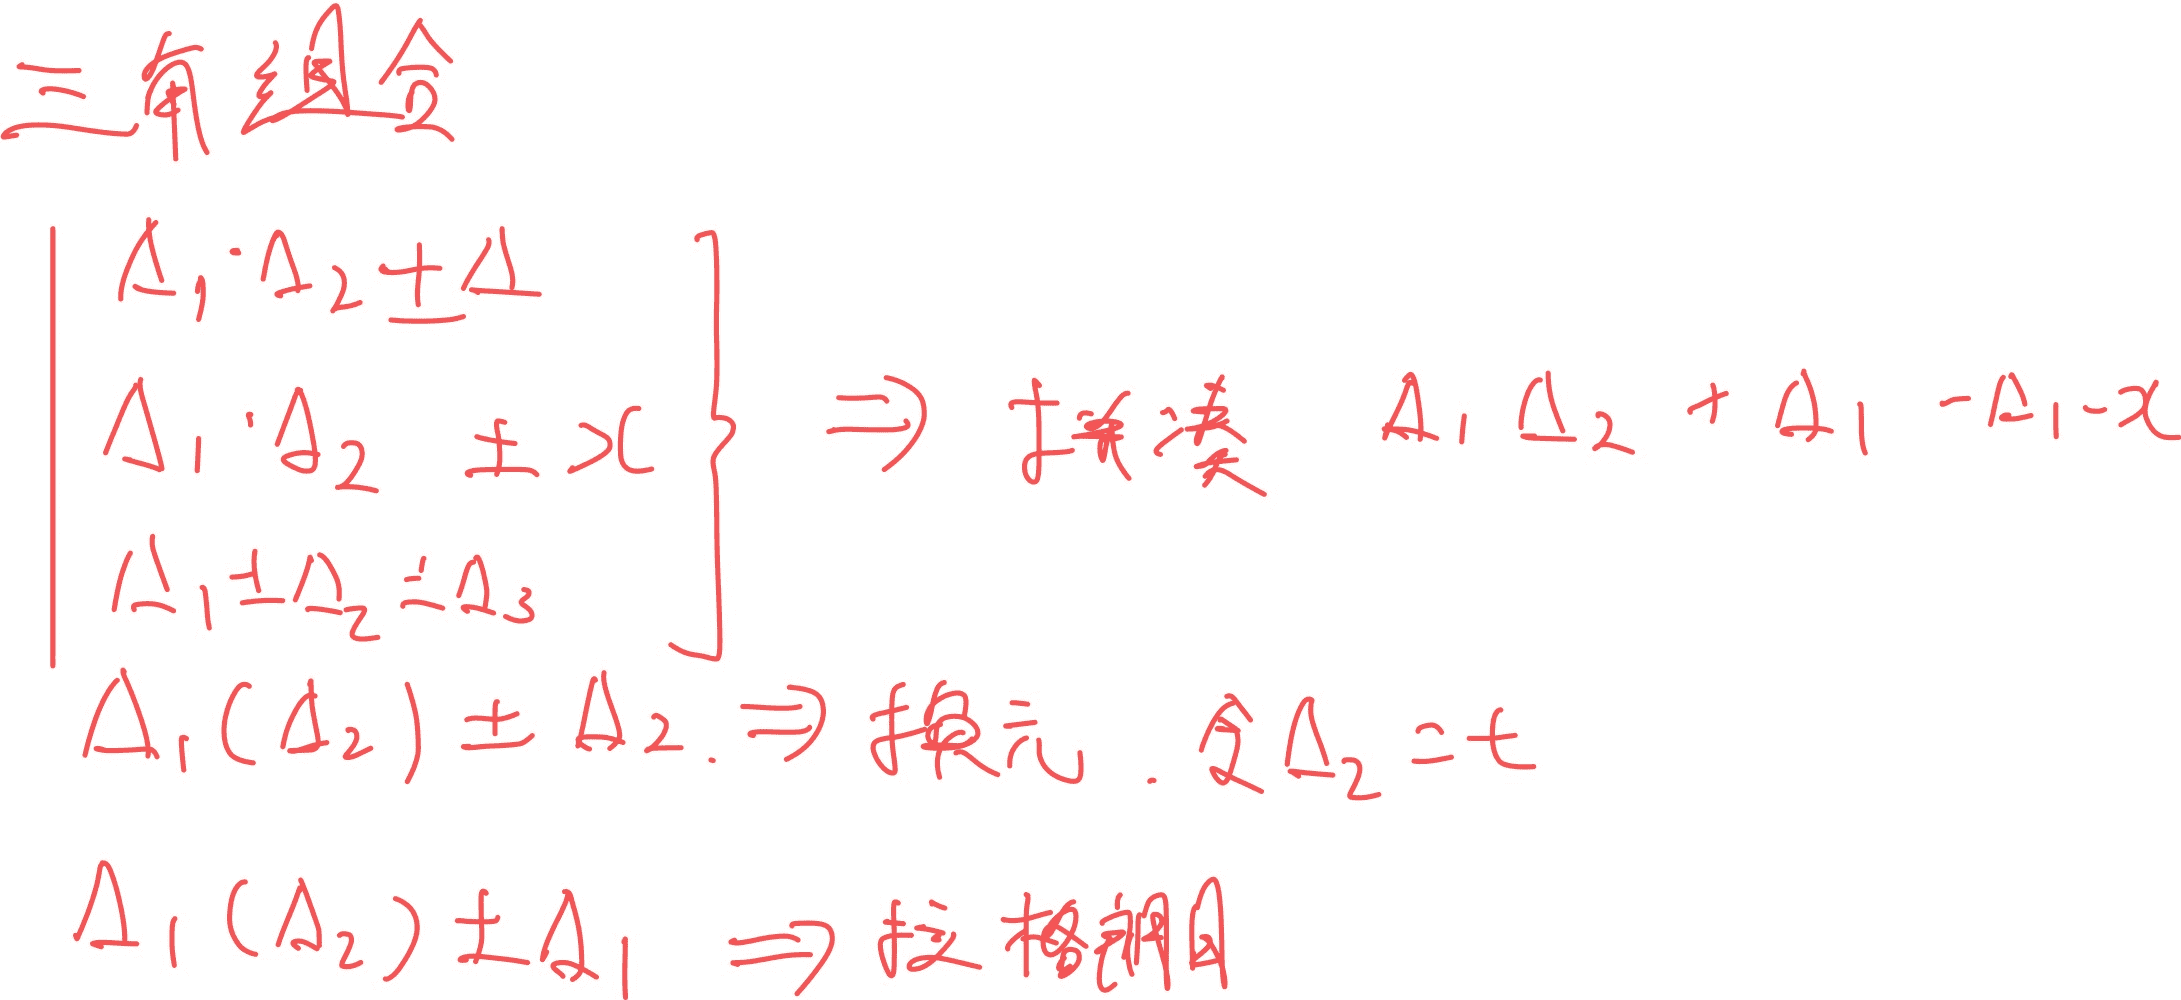 三角组合
Δ₁·Δ₂±Δ
Δ₁·Δ₂ ± x
Δ₁±Δ₂±Δ₃
⇒ 拼凑 Δ₁Δ₂ + Δ₁ - Δ₁ - x
Δ₁(Δ₂) ± Δ₂. ⇒ 换元. 令Δ₂=t
Δ₁(Δ₂) ± Δ₁ ⇒ 拉格朗日